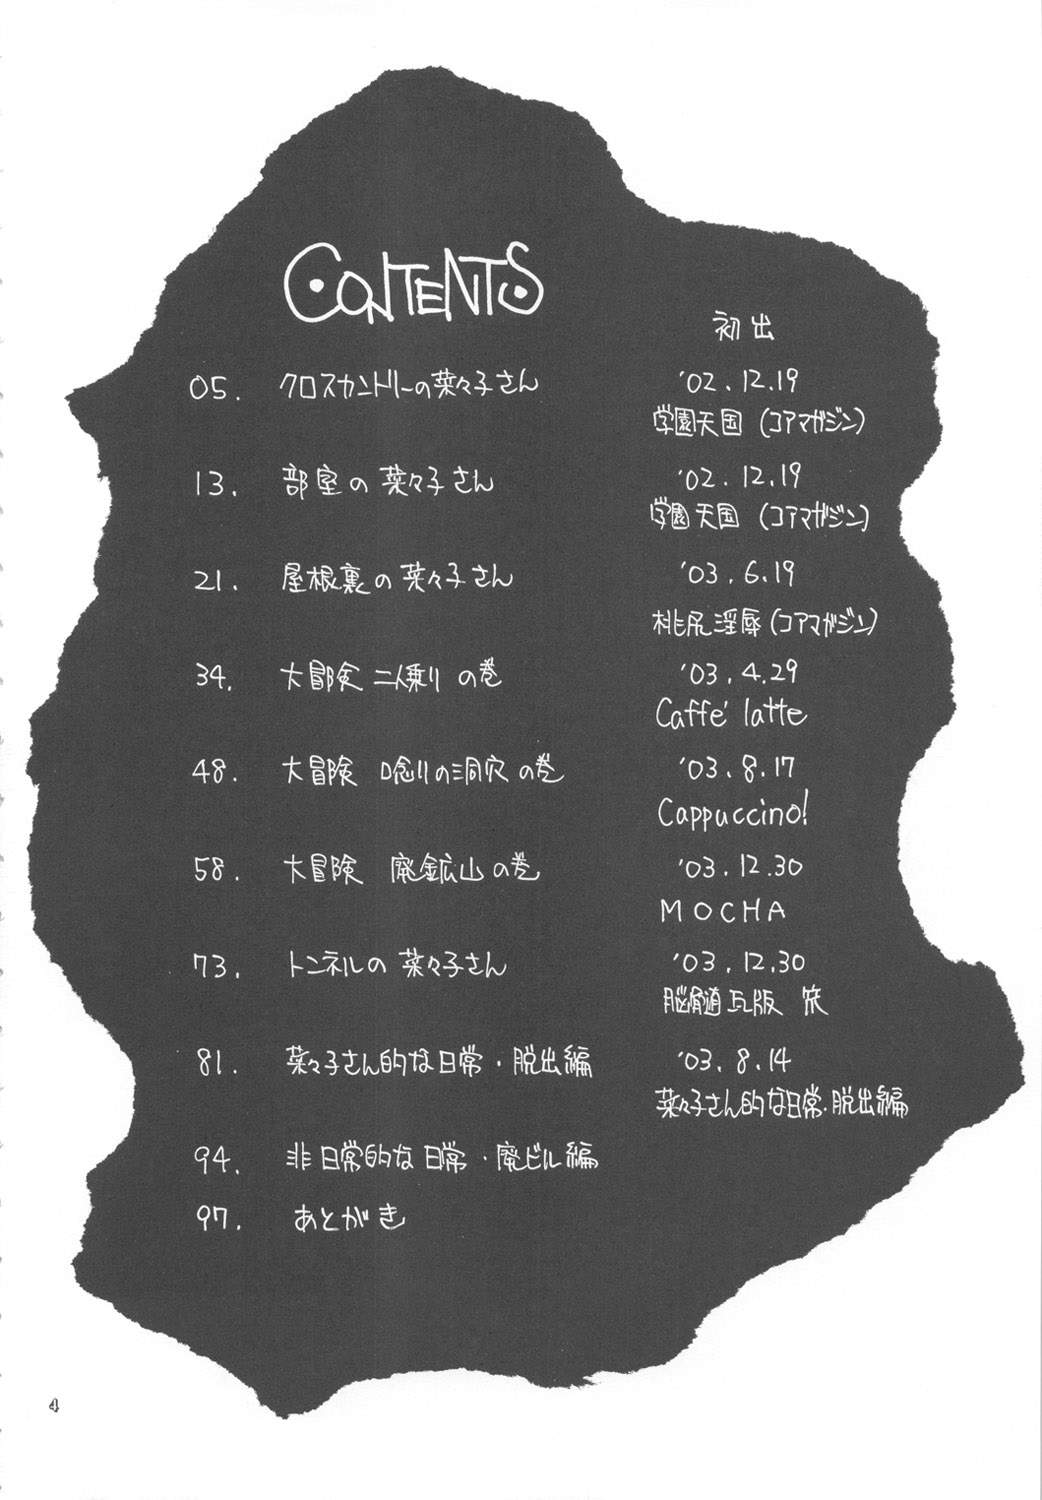 CONTENTS
初出
05. クロスカントリーの菜々子さん
'02.12.19
学園天国 (コアマガジン)
13. 部室の菜々子さん
'02.12.19
学園天国 (コアマガジン)
21. 屋根裏の菜々子さん
'03.6.19
桃尻淫辱 (コアマガジン)
34. 大冒険 二人乗りの巻
'03.4.29
Caffe' latte
48. 大冒険 唸りの洞穴の巻
'03.8.17
Cappuccino!
58. 大冒険 廃鉱山の巻
'03.12.30
MOCHA
73. トンネルの菜々子さん
'03.12.30
脳髄瓦版
81. 菜々子さん的な日常・脱出編
'03.8.14
菜々子さん的な日常・脱出編
94. 非日常的な日常・廃ビル編
97. あとがき
4